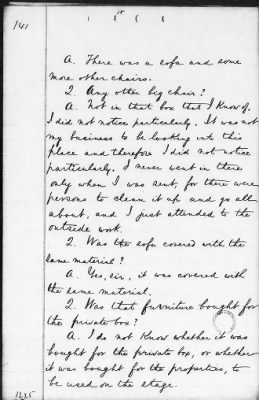 141
A. There was a sofa and some
more other chairs.
Q. Any other big chair?
A. Not in that box that I know of.
I did not notice particularly. It was not
my business to be looking into this
place and therefore I did not notice
particularly. I never went in there
only when I was sent, for there were
persons to clean it up and go all
about, and I just attended to the
outside work.
Q. Was the sofa covered with the
same material?
A. Yes, sir, it was covered with
the same material.
Q. Was that furniture bought for
the private box?
A. I do not know whether it was
bought for the private box, or whether
it was bought for the properties, to
be used on the stage.
1225